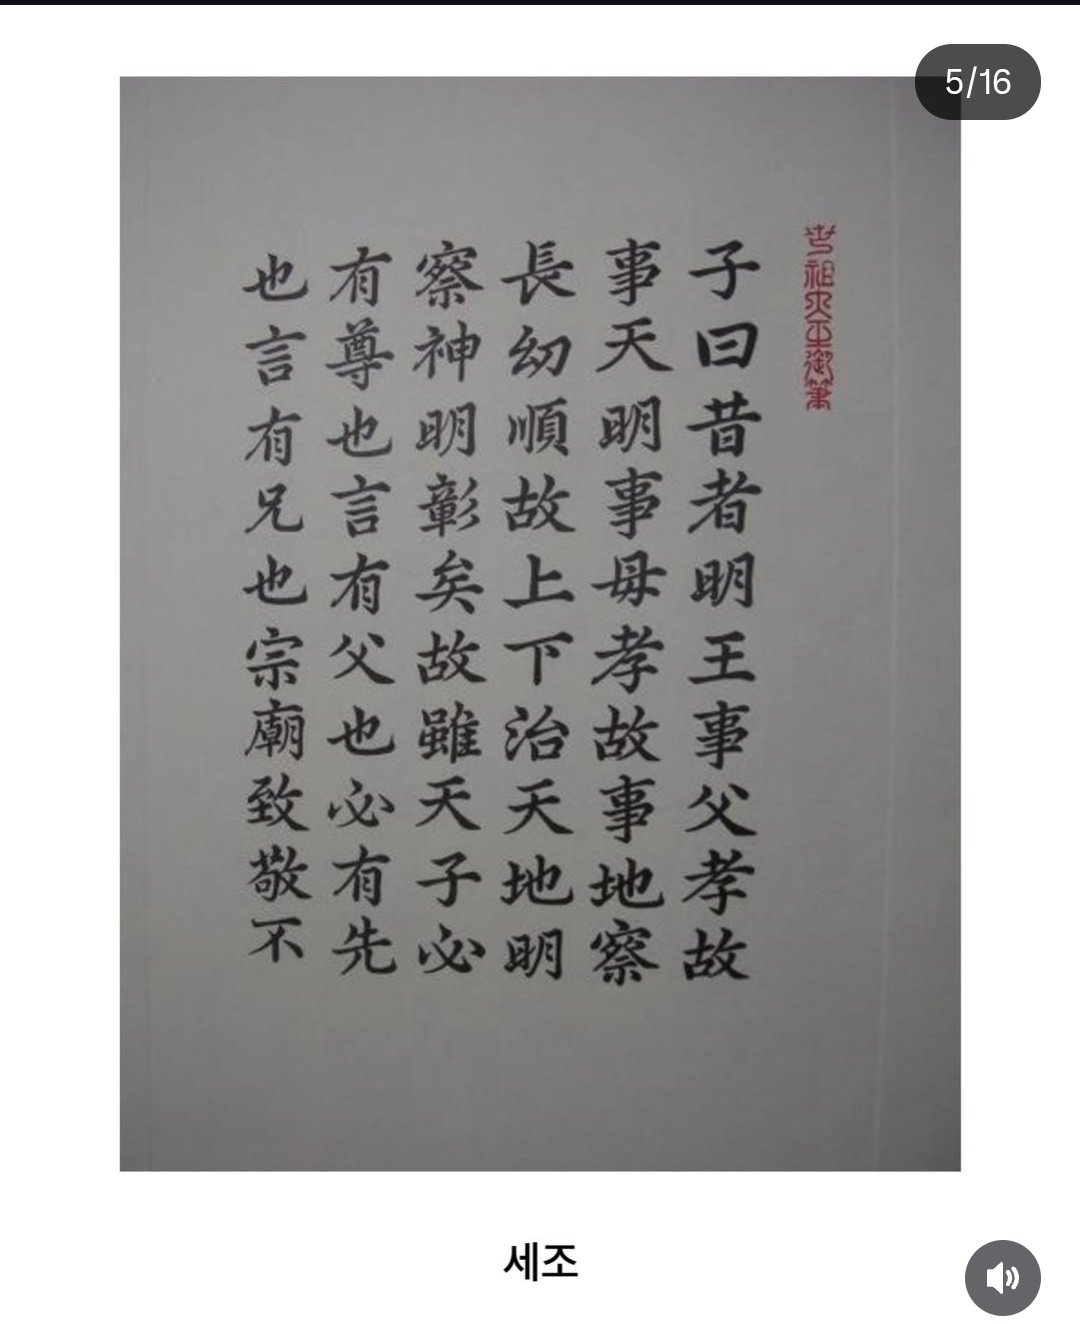 5/16
世祖大王御筆
子曰昔者明王事父孝故
事天明事母孝故事地察
長幼順故上下治天地明
察神明彰矣故雖天子必
有尊也言有父也必有先
也言有兄也宗廟致敬不
세조